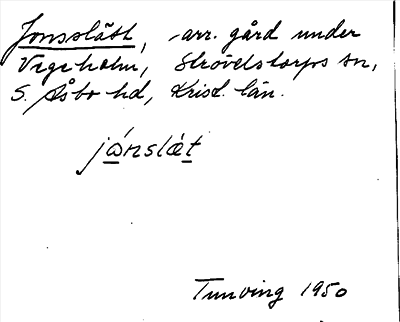 Jonsslätt, arr. gård under
Vegeholm, Strövelstorps sn,
S. Åsbo hd, Krist. län.
jònslǽt
Tunving 1950